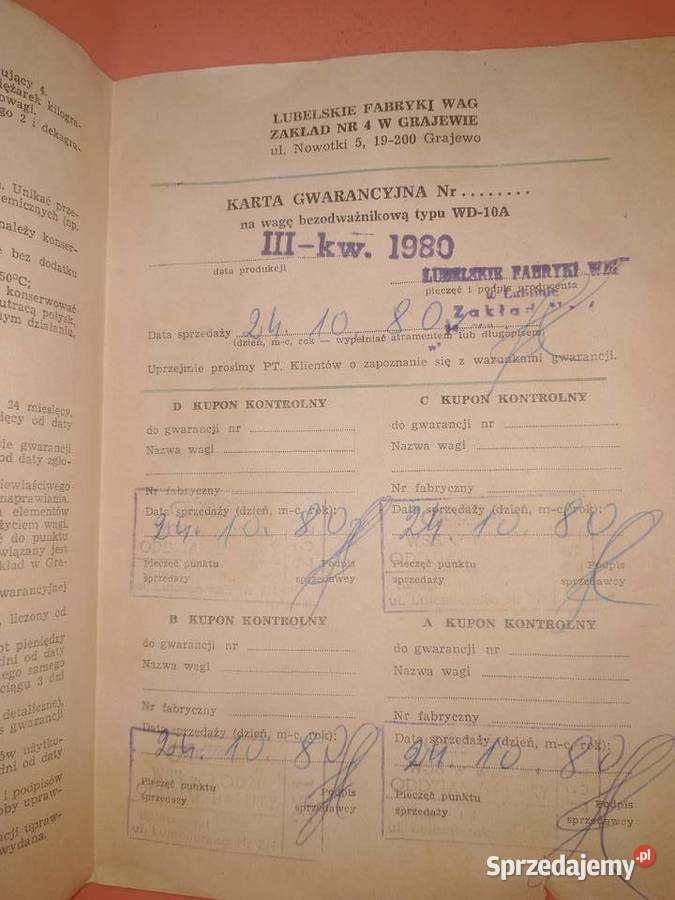 ujący 4.
ężarek kilogra-
owagi.
go 2 i dekagra-
Unikać prze-
emicznych (np.
należy konser-
e bez dodatku
50°C;
konserwować
utracą połysk,
nym działaniu,
24 miesięcy,
ięcy od daty
gwarancji
od daty zgło-
iewłaściwego
naprawiania.
elementów
życiem wagi.
do punktu
wiązany jest
kład w Gra-
warancyjnej
liczony od
ot pieniędzy
dni od daty
zego samego
ciągu 3 dni
detalicznej,
s gwarancji
ów użytko-
dni od daty
i podpisów
oby upraw-
cji upraw-
wydana.
LUBELSKIE FABRYKI WAG
ZAKŁAD NR 4 W GRAJEWIE
ul. Nowotki 5, 19-200 Grajewo
KARTA GWARANCYJNA Nr ........
na wagę bezodważnikową typu WD-10A
III-kw. 1980
data produkcji
LUBELSKIE FABRYKI
pieczęć i podpis producenta
w Lublinie
Zakład
Data sprzedaży 24. 10. 80
(dzień, m-c, rok — wypełniać atramentem lub długopisem)
Uprzejmie prosimy PT. Klientów o zapoznanie się z warunkami gwarancji.
D KUPON KONTROLNY
do gwarancji nr
Nazwa wagi
Nr fabryczny
Data sprzedaży (dzień, m-c, rok):
24. 10. 80
Pieczęć punktu Podpis
sprzedaży sprzedawcy
C KUPON KONTROLNY
do gwarancji nr
Nazwa wagi
Nr fabryczny
Data sprzedaży (dzień, m-c, rok):
24. 10. 80
Pieczęć punktu Podpis
sprzedaży sprzedawcy
B KUPON KONTROLNY
do gwarancji nr
Nazwa wagi
Nr fabryczny
Data sprzedaży (dzień, m-c, rok):
24. 10. 80
Pieczęć punktu Podpis
sprzedaży sprzedawcy
A KUPON KONTROLNY
do gwarancji nr
Nazwa wagi
Nr fabryczny
Data sprzedaży (dzień, m-c, rok):
24. 10. 80
Pieczęć punktu Podpis
sprzedaży sprzedawcy
Sprzedajemy.pl